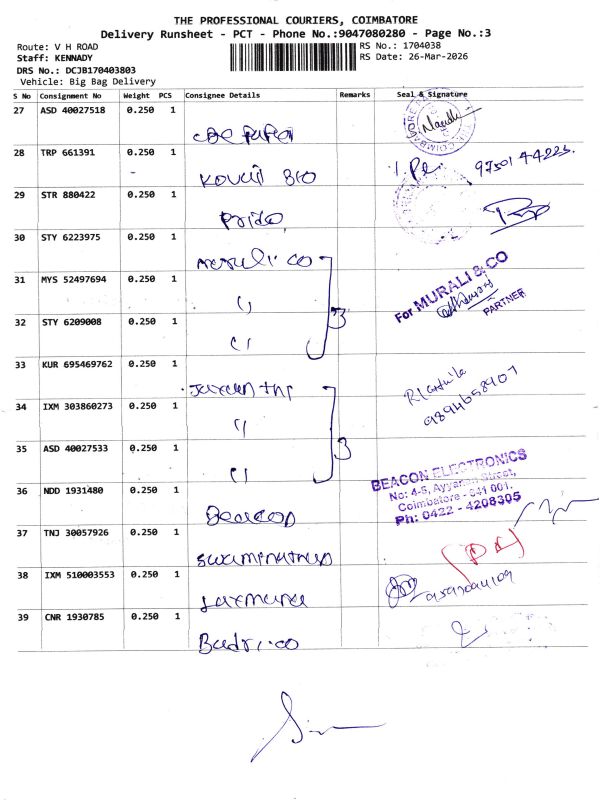 THE PROFESSIONAL COURIERS, COIMBATORE
Delivery Runsheet - PCT - Phone No.:9047080280 - Page No.:3
Route: V H ROAD
RS No.: 1704038
Staff: KENNADY
RS Date: 26-Mar-2026
DRS No.: DCJB170403803
Vehicle: Big Bag Delivery
S No Consignment No Weight PCS Consignee Details Remarks Seal & Signature
27 ASD 40027518 0.250 1
28 TRP 661391 0.250 1
97501 44223
29 STR 880422 0.250 1
30 STY 6223975 0.250 1
Murali.co
31 MYS 52497694 0.250 1
3
For MURALI & CO
PARTNER
32 STY 6209008 0.250 1
33 KUR 695469762 0.250 1
9894658907
34 IXM 303860273 0.250 1
35 ASD 40027533 0.250 1
3
36 NDD 1931480 0.250 1
Beacon
BEACON ELECTRONICS
No: 4-5, Ayyanan Street,
Coimbatore - 641 001.
Ph: 0422 - 4208305
37 TNJ 30057926 0.250 1
38 IXM 510003553 0.250 1
39 CNR 1930785 0.250 1
Badri.co